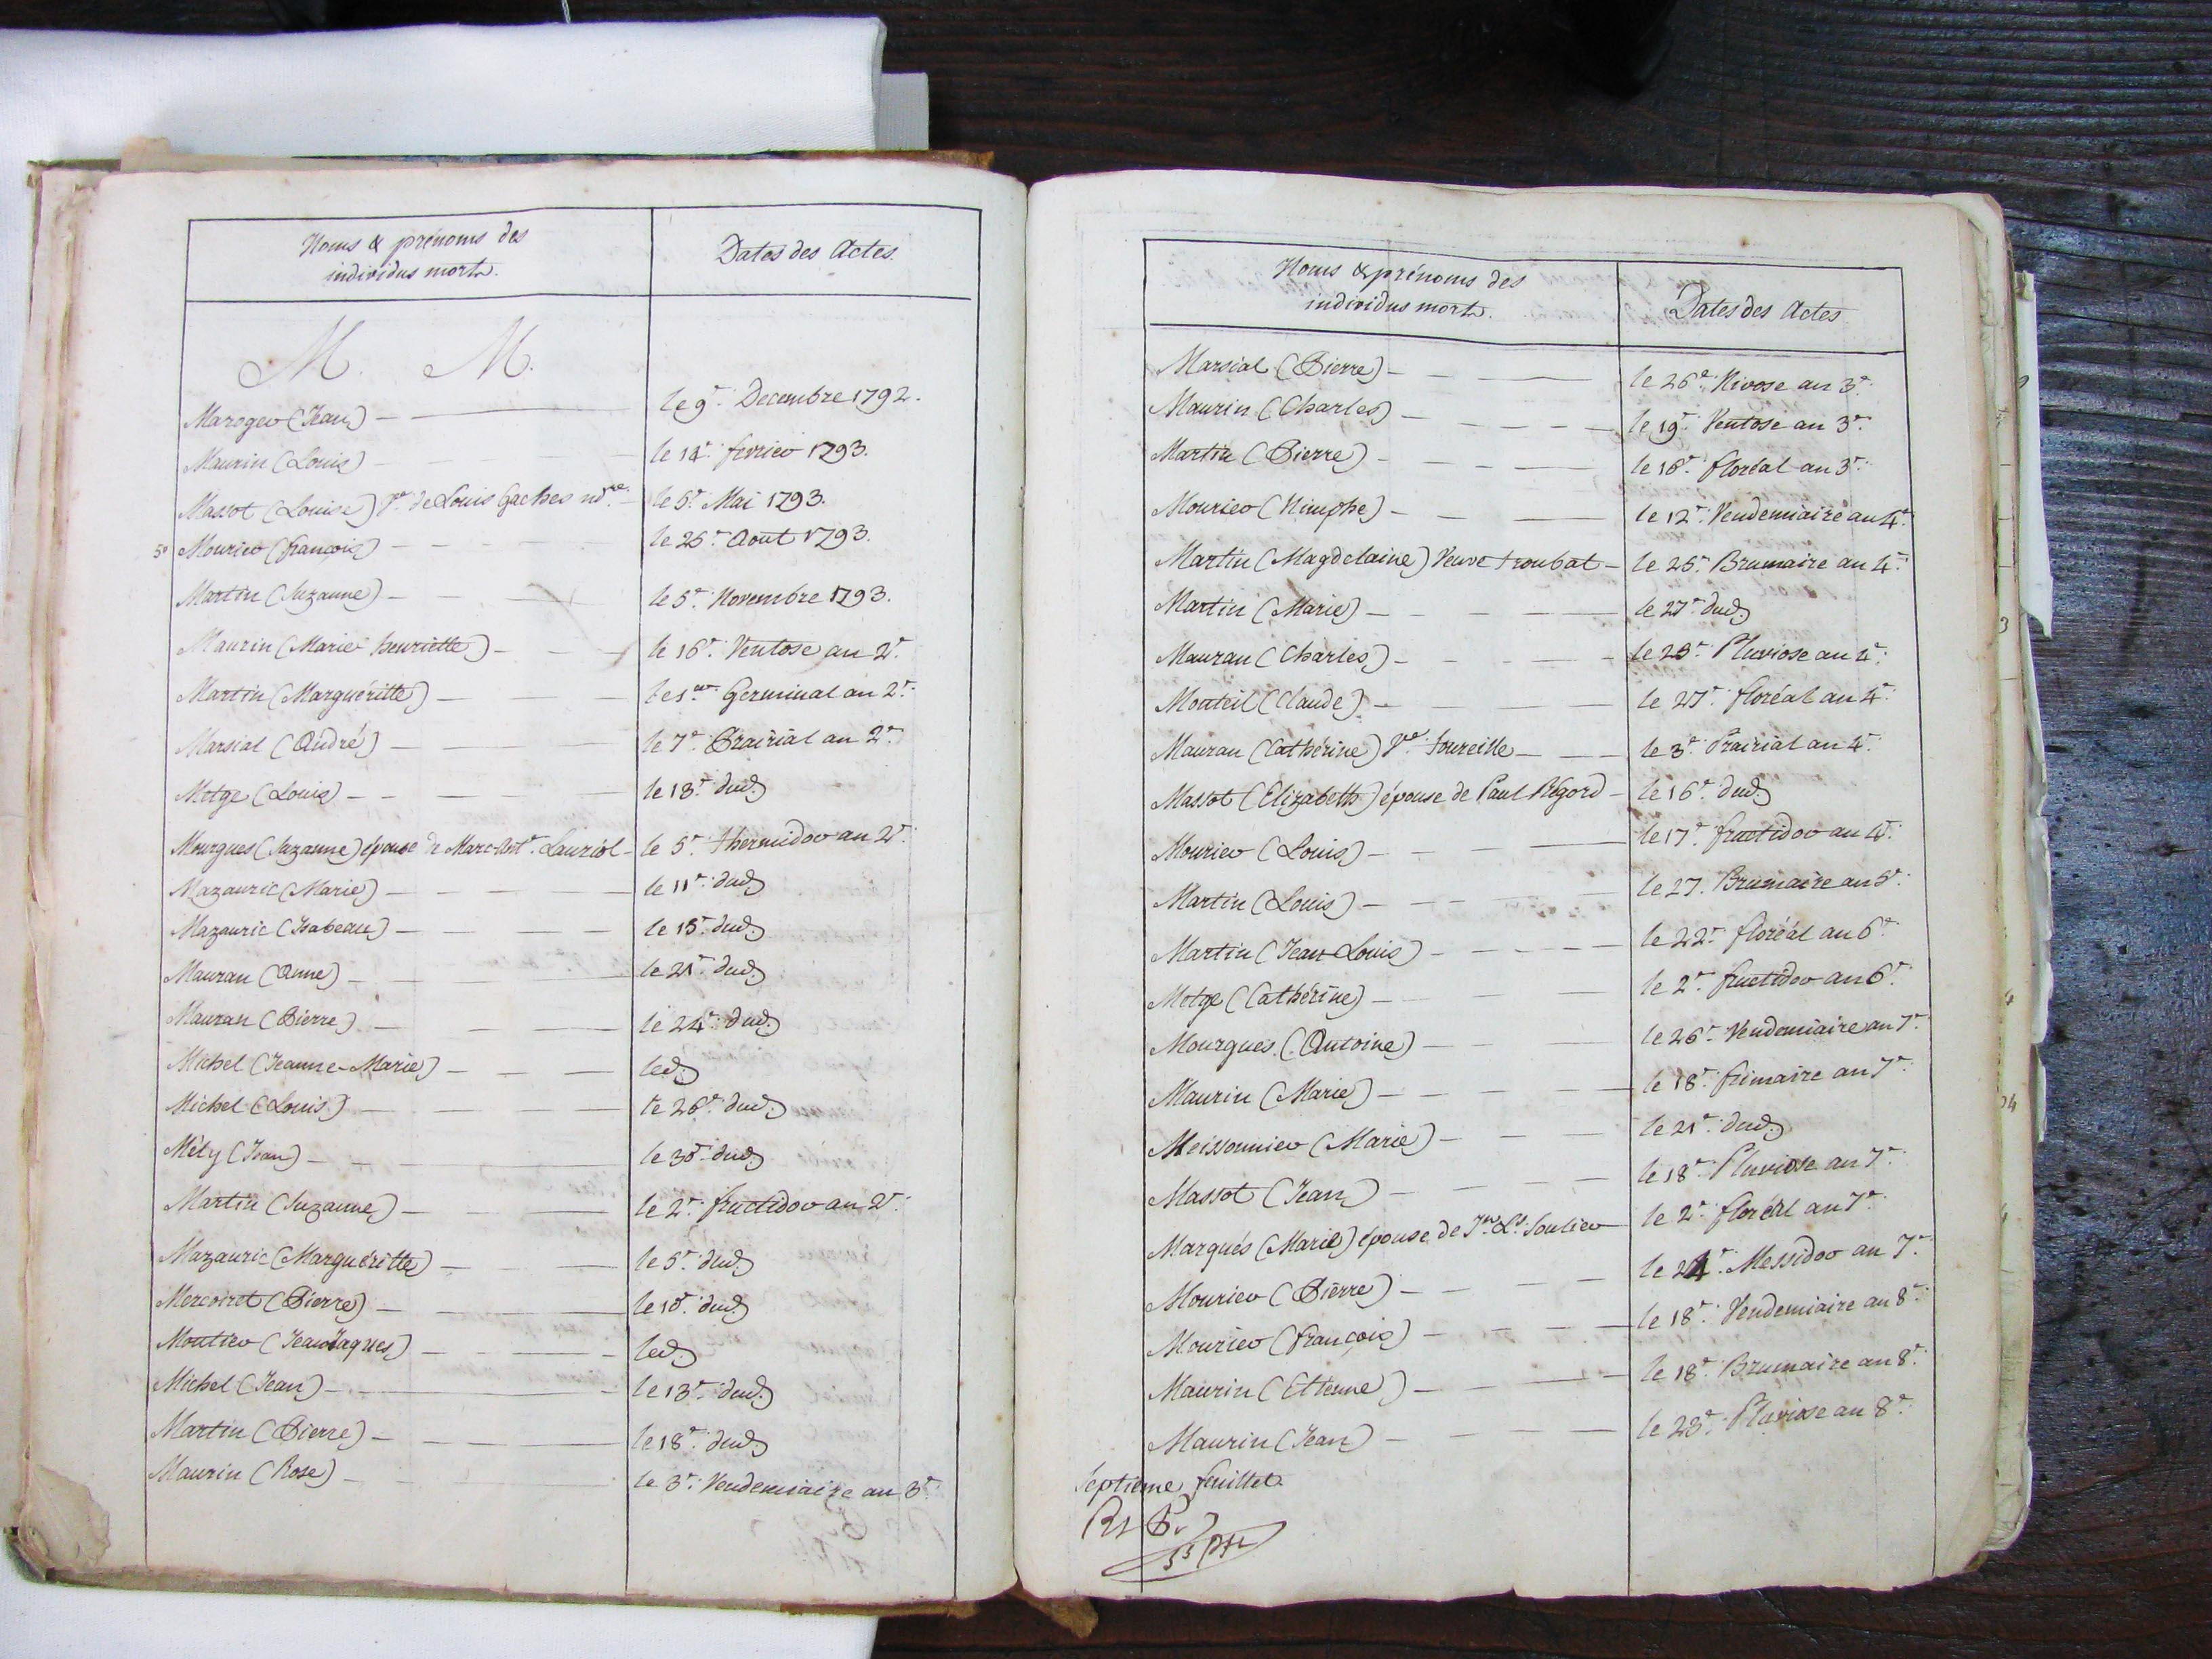 Noms & prénoms des
individus morts.
Dates des Actes.
M. M.
Maroger (Jean) — le 9e. Decembre 1792.
Maurin (Louis) — le 14e. fevrier 1793.
Massot (Louise) Ve. de Louis Gaches ndre. — le 5e. Mai 1793.
50 Mourier (françois) — le 26e. Aout 1793.
Martin (Suzanne) — le 5e. Novembre 1793.
Maurin (Marie henriette) — le 16e. Ventose an 2e.
Martin (Marguéritte) — le 1er. Germinal an 2e.
Marsial (André) — le 7e. Prairial an 2e.
Metge (Louis) — le 18e. dud.
Mourgues (Suzanne) épouse de Marc-Ant. Lauriol — le 5e. thermidor an 2e.
Mazauric (Marie) — le 11e. dud.
Mazauric (Isabeau) — le 15e. dud.
Mauran (Anne) — le 21e. dud.
Mauran (Pierre) — le 24e. dud.
Michel (Jeanne-Marie) — led.
Michel (Louis) — le 26e. dud.
Mély (Jean) — le 30e. dud.
Martin (Suzanne) — le 2e. fructidor an 2e.
Mazauric (Marguéritte) — le 5e. dud.
Mercoiret (Pierre) — le 10e. dud.
Moutier (Jean Jaques) — led.
Michel (Jean) — le 13e. dud.
Martin (Pierre) — le 18e. dud.
Maurin (Rose) — le 3e. Vendemiaire an 3e.
Noms & prénoms des
individus morts.
Dates des Actes
Marsial (Pierre) — le 26e. Nivose an 3e.
Maurin (Charles) — le 19e. Ventose an 3e.
Martin (Pierre) — le 16e. floréal an 3e.
Mourier (Nimphe) — le 12e. Vendemiaire an 4e.
Martin (Magdelaine) Veuve troubat — le 26e. Brumaire an 4e.
Martin (Marie) — le 27e. dud.
Mauran (Charles) — le 23e. Pluviose an 4e.
Monteil (Claude) — le 27e. floréal an 4e.
Mauran (Cathérine) Ve. Toureille — le 3e. Prairial an 4e.
Massot (Elizabeth) épouse de Paul Rigord — le 16e. dud.
Mourier (Louis) — le 17e. fructidor an 4e.
Martin (Louis) — le 27. Brumaire an 5e.
Martin (Jean Louis) — le 22e. floréal an 6e.
Metge (Cathérine) — le 2e. fructidor an 6e.
Mourgues (Antoine) — le 26e. Vendemiaire an 7e.
Maurin (Marie) — le 18e. frimaire an 7e.
Meissonnier (Marie) — le 21e. dud.
Massot (Jean) — le 18e. Pluviose an 7e.
Marqués (Marie) épouse de Jn. Ls. Soulier — le 2e. floréal an 7e.
Mourier (Pierre) — le 24e. Messidor an 7e.
Mourier (françois) — le 18e. Vendemiaire an 8e.
Maurin (Etienne) — le 18e. Brumaire an 8e.
Maurin (Jean) — le 23e. Pluviose an 8e.
Septième feuillet